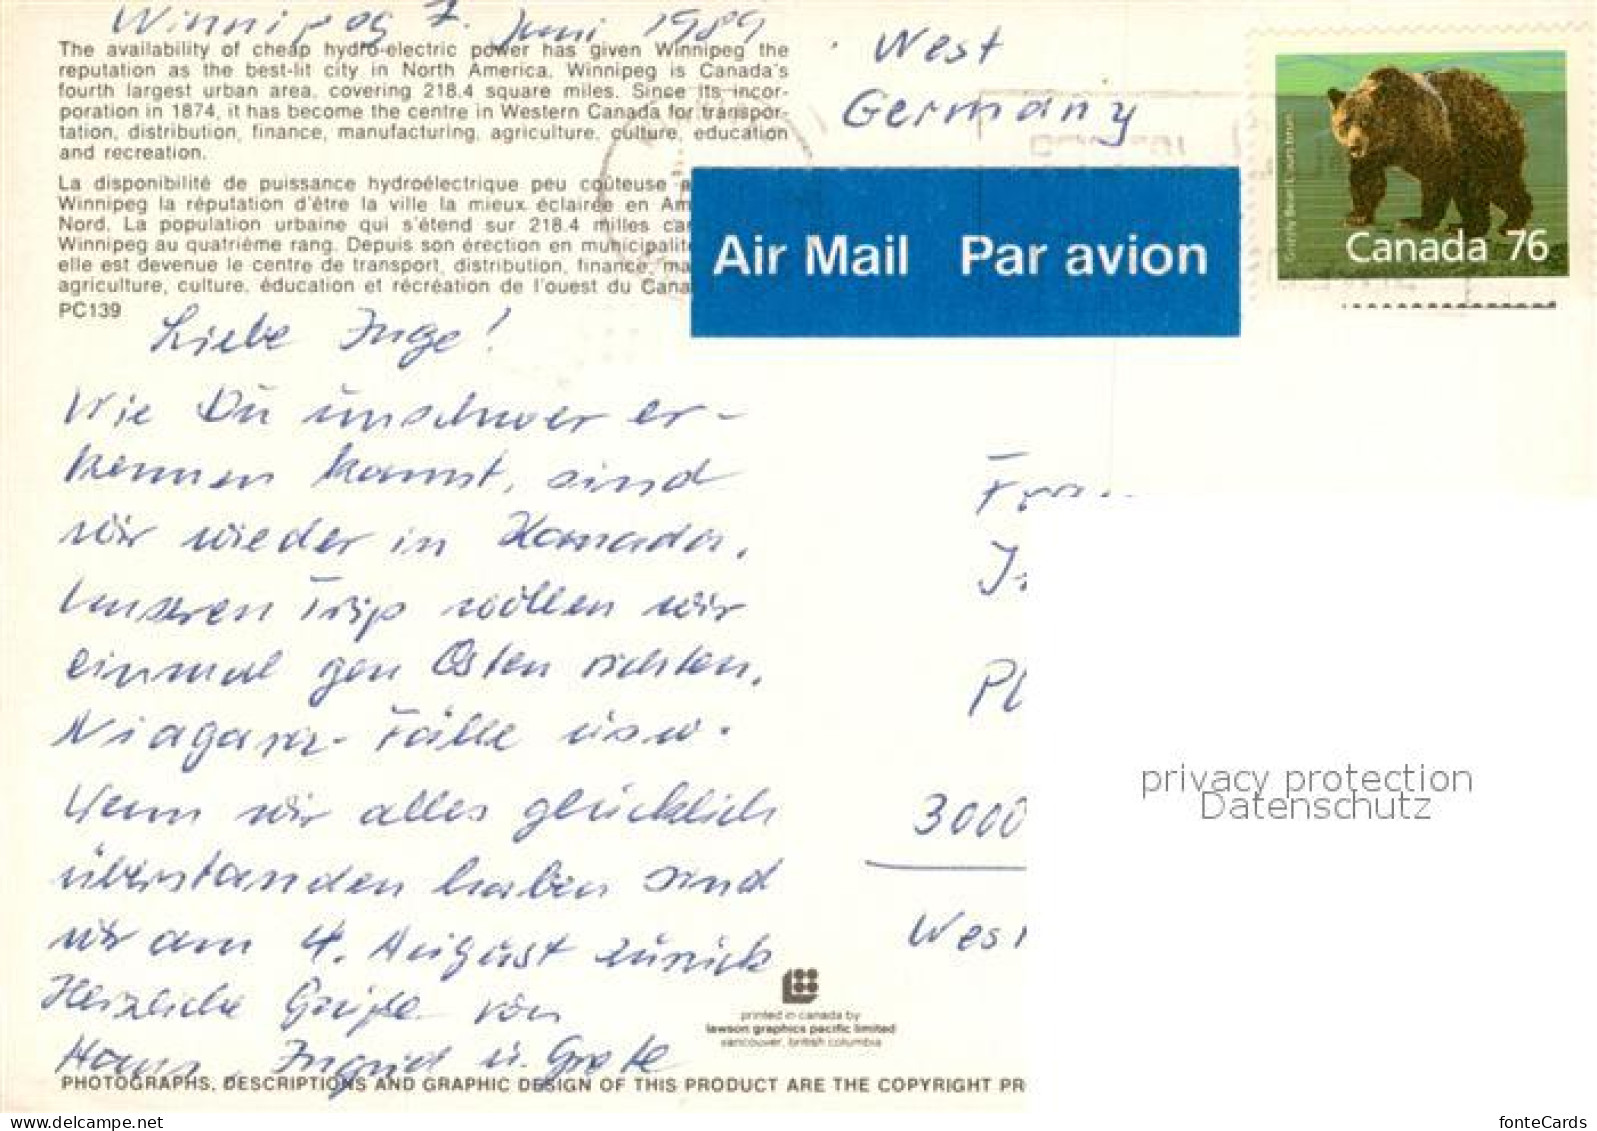 Winnipeg 7. Juni 1989
The availability of cheap hydro-electric power has given Winnipeg the
reputation as the best-lit city in North America. Winnipeg is Canada's
fourth largest urban area, covering 218.4 square miles. Since its incor-
poration in 1874, it has become the centre in Western Canada for transpor-
tation, distribution, finance, manufacturing, agriculture, culture, education
and recreation.
La disponibilité de puissance hydroélectrique peu coûteuse a
Winnipeg la réputation d'être la ville la mieux éclairée en Am
Nord. La population urbaine qui s'étend sur 218.4 milles ca
Winnipeg au quatrième rang. Depuis son érection en municipalité
elle est devenue le centre de transport, distribution, finance, ma
agriculture, culture, éducation et récréation de l'ouest du Cana
PC139
West
Germany
Air Mail Par avion
Grizzly Bear
Canada 76
Liebe Inge!
Wie Du unschwer er-
kennen kannst, sind
wir wieder in Kanada.
Unseren Trip wollen wir
einmal gen Osten richten.
Niagara-Fälle usw.
Wenn wir alles glücklich
überstanden haben sind
wir am 4. August zurück
Herzliche Grüße von
Hans, Ingrid u. Grete
Frau
3000
West
privacy protection
Datenschutz
printed in canada by
lawson graphics pacific limited
vancouver, british columbia
PHOTOGRAPHS, DESCRIPTIONS AND GRAPHIC DESIGN OF THIS PRODUCT ARE THE COPYRIGHT PR
https://www.delcampe.net
fonteCards